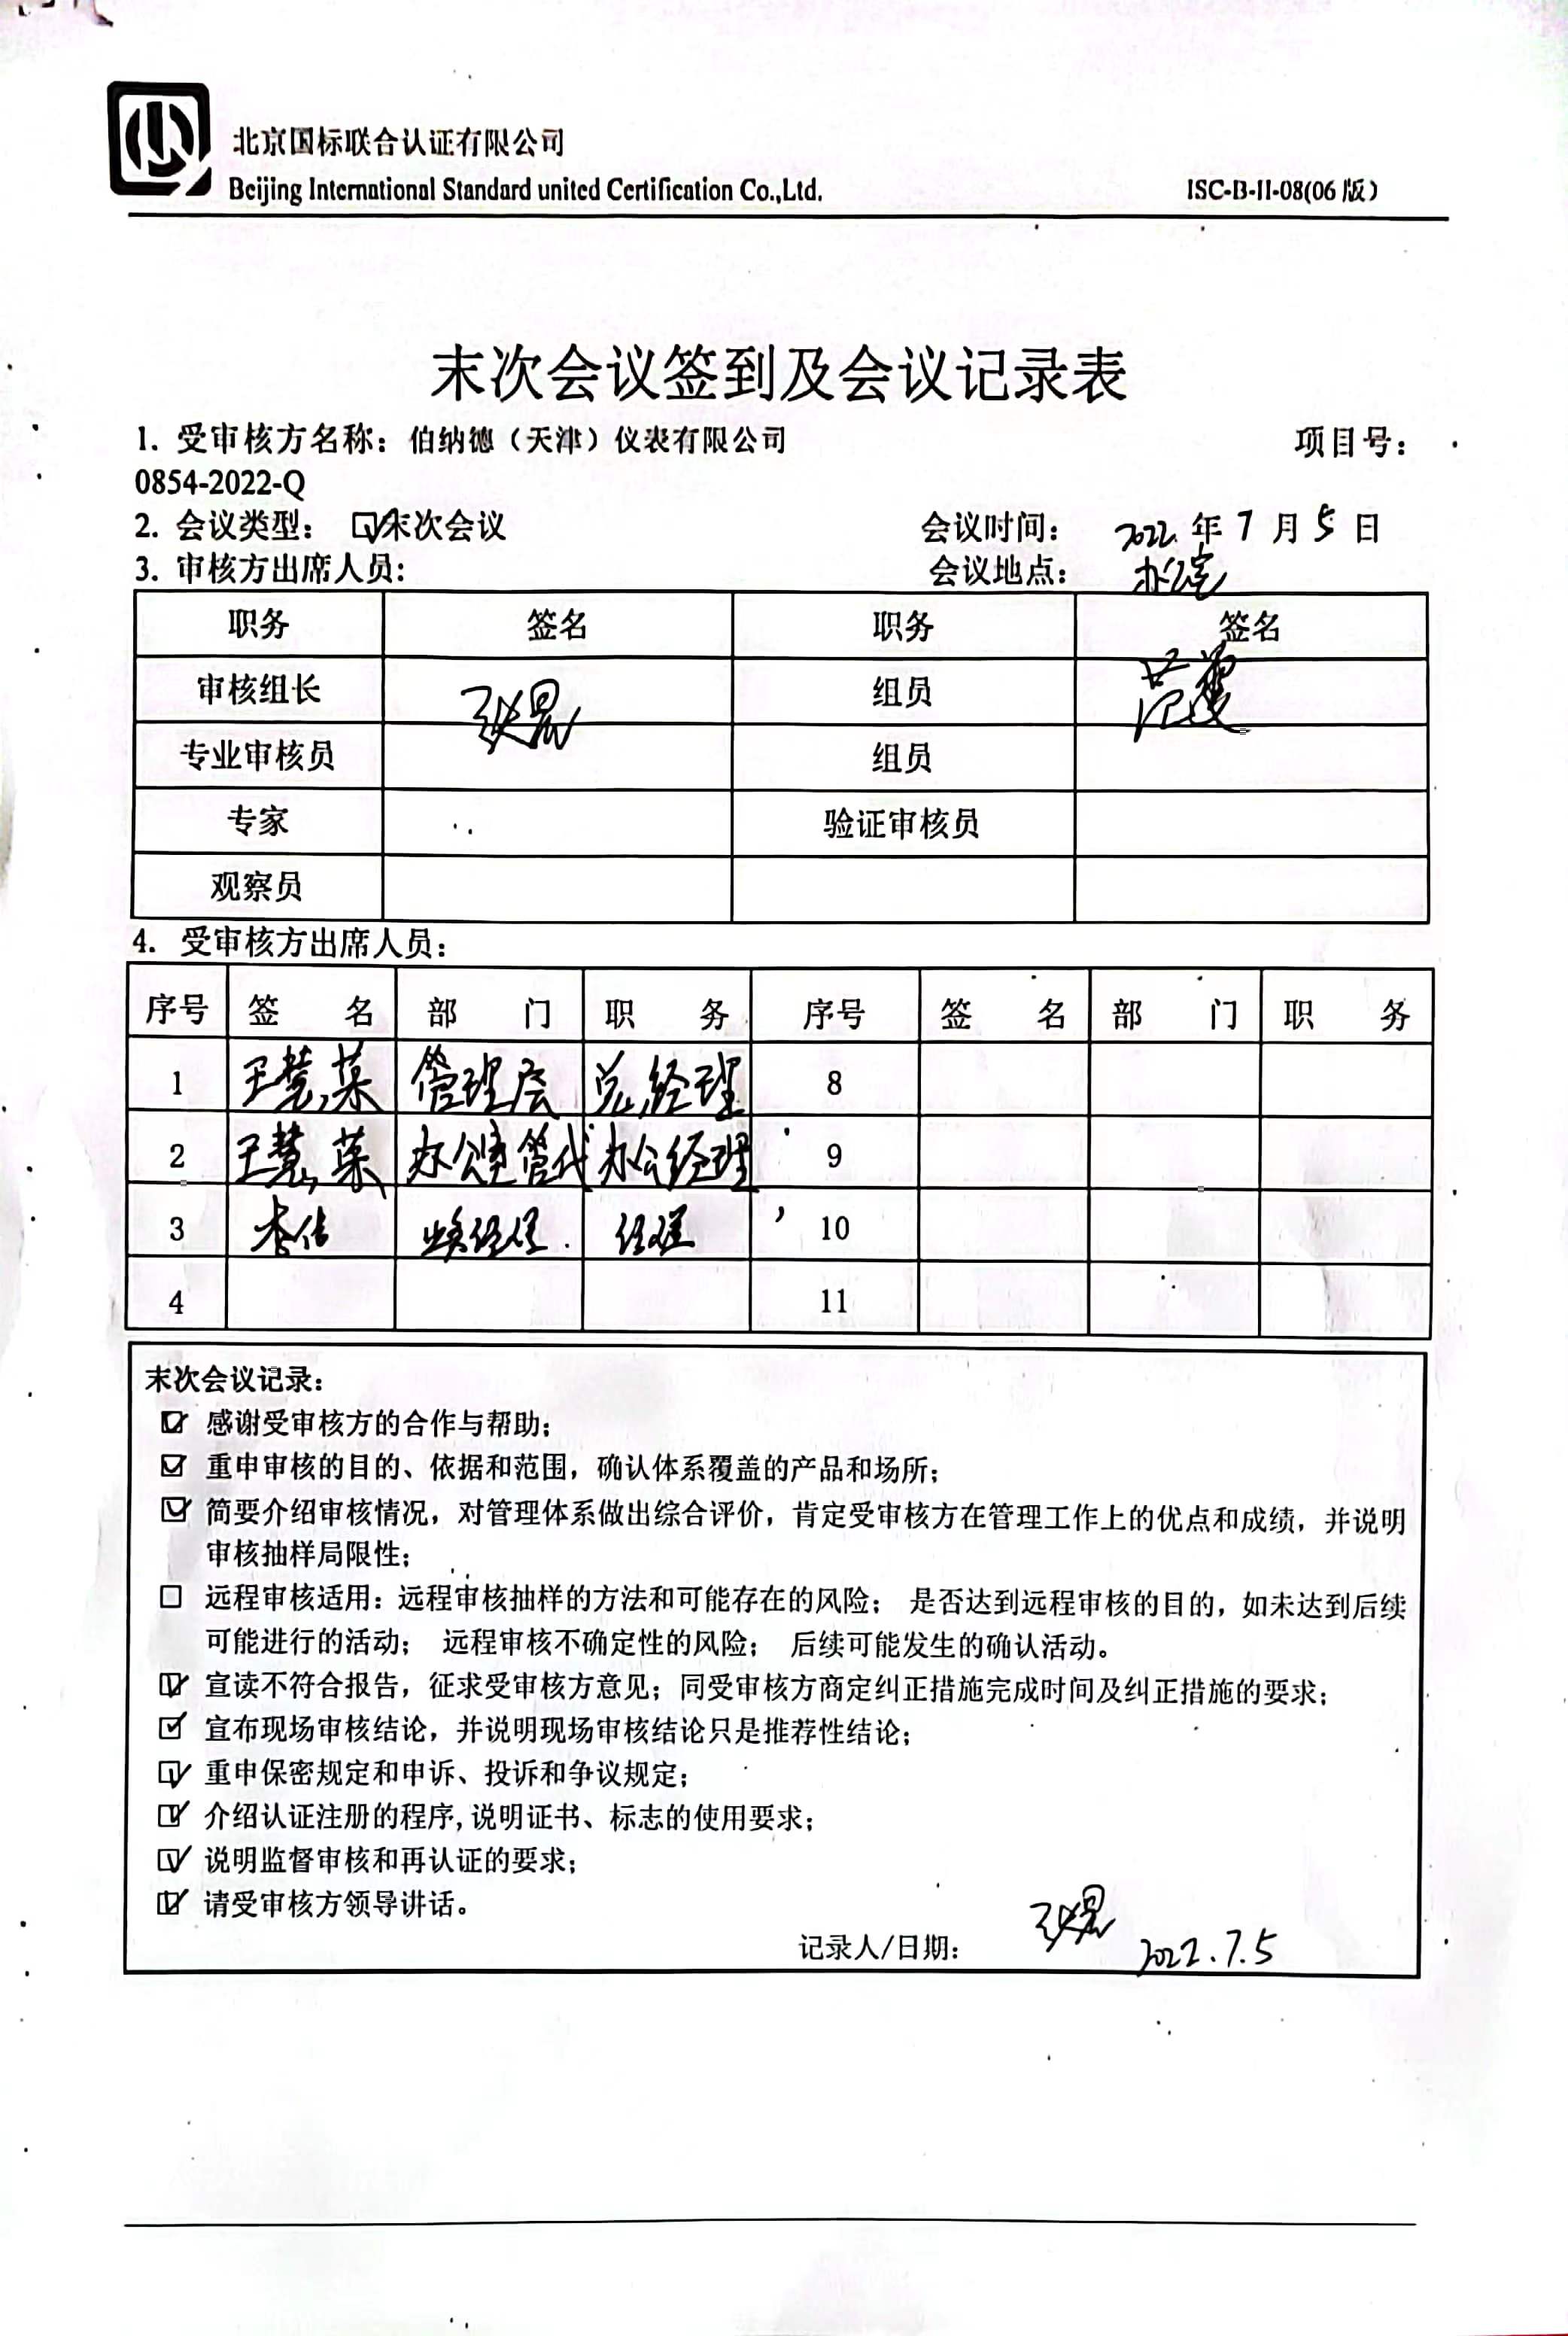 北京国标联合认证有限公司
Beijing International Standard united Certification Co.,Ltd. ISC-B-II-08(06版)
末次会议签到及会议记录表
1. 受审核方名称：伯纳德（天津）仪表有限公司 项目号：
0854-2022-Q
2. 会议类型： ☑末次会议 会议时间： 2022 年 7 月 5 日
3. 审核方出席人员： 会议地点： 办公室
职务 签名 职务 签名
审核组长 张昊 组员
专业审核员 组员
专家 验证审核员
观察员
4. 受审核方出席人员：
序号 签 名 部 门 职 务 序号 签 名 部 门 职 务
1 王慧,英 管理层 总经理 8
2 王慧,英 办公室管代 办公经理 9
3 李佳 经理 10
4 11
末次会议记录：
☑ 感谢受审核方的合作与帮助；
☑ 重申审核的目的、依据和范围，确认体系覆盖的产品和场所；
☑ 简要介绍审核情况，对管理体系做出综合评价，肯定受审核方在管理工作上的优点和成绩，并说明
审核抽样局限性；
☐ 远程审核适用：远程审核抽样的方法和可能存在的风险； 是否达到远程审核的目的，如未达到后续
可能进行的活动； 远程审核不确定性的风险； 后续可能发生的确认活动。
☑ 宣读不符合报告，征求受审核方意见；同受审核方商定纠正措施完成时间及纠正措施的要求；
☑ 宣布现场审核结论，并说明现场审核结论只是推荐性结论；
☑ 重申保密规定和申诉、投诉和争议规定；
☑ 介绍认证注册的程序,说明证书、标志的使用要求；
☑ 说明监督审核和再认证的要求；
☑ 请受审核方领导讲话。
记录人/日期： 张昊 2022.7.5